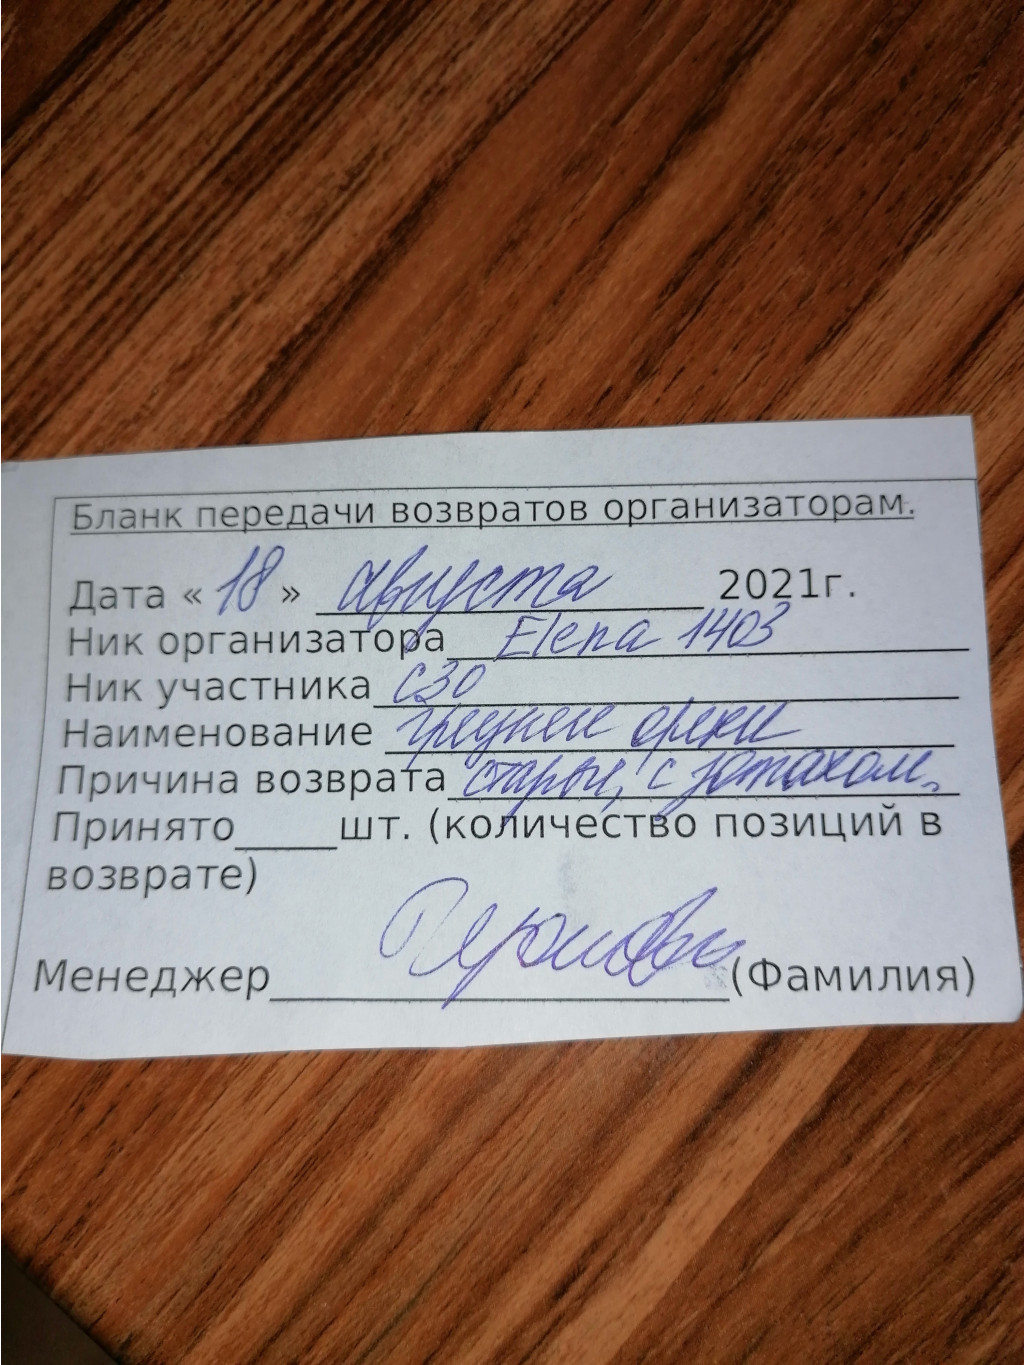 Бланк передачи возвратов организаторам.
Дата «18» августа 2021г.
Ник организатора Elena 1403
Ник участника с30
Наименование грецкие орехи
Причина возврата старые, с запахом.
Принято_____шт. (количество позиций в
возврате)
Менеджер (Фамилия)